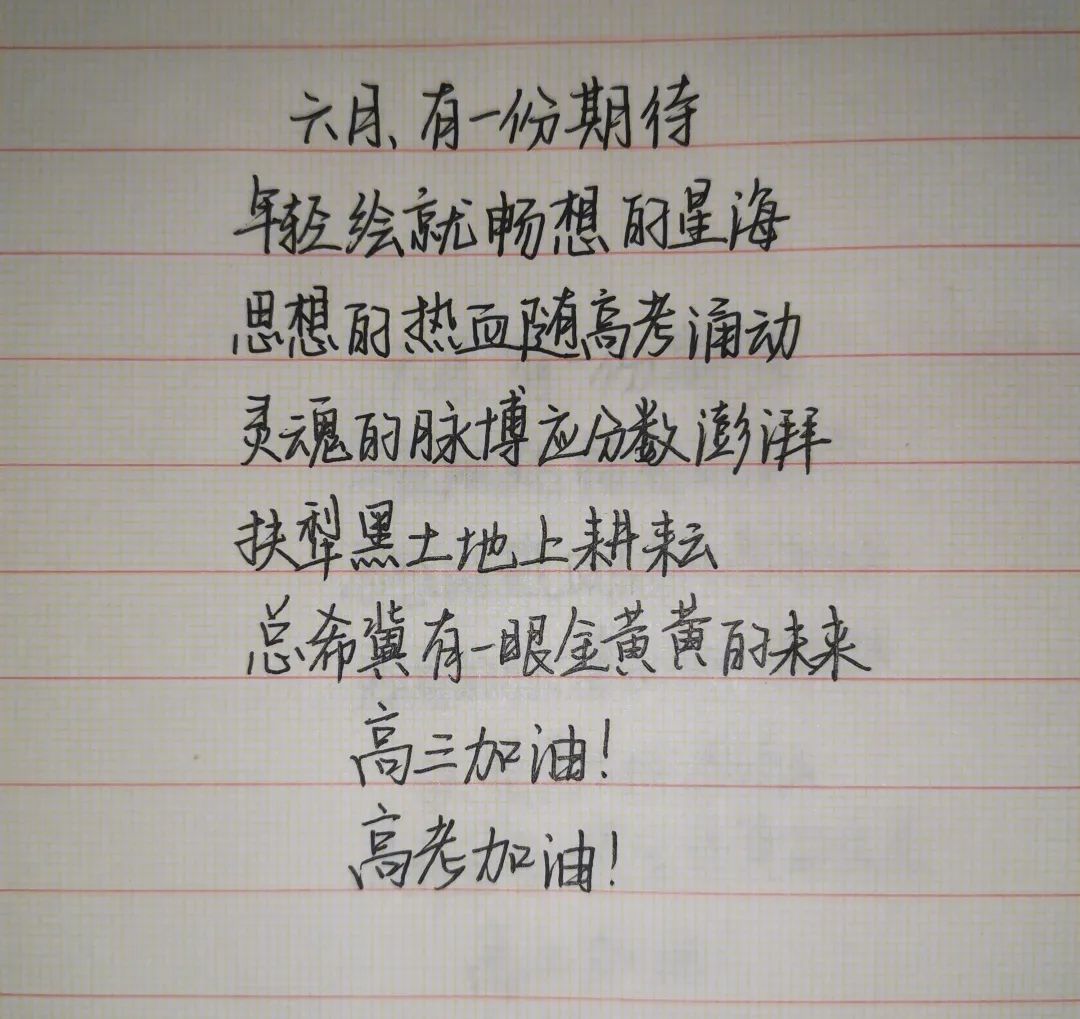 六月、有一份期待
年轻绘就畅想的星海
思想的热血随高考涌动
灵魂的脉博应分数澎湃
扶犁黑土地上耕耘
总希冀有一眼金黄黄的未来
高三加油!
高考加油!